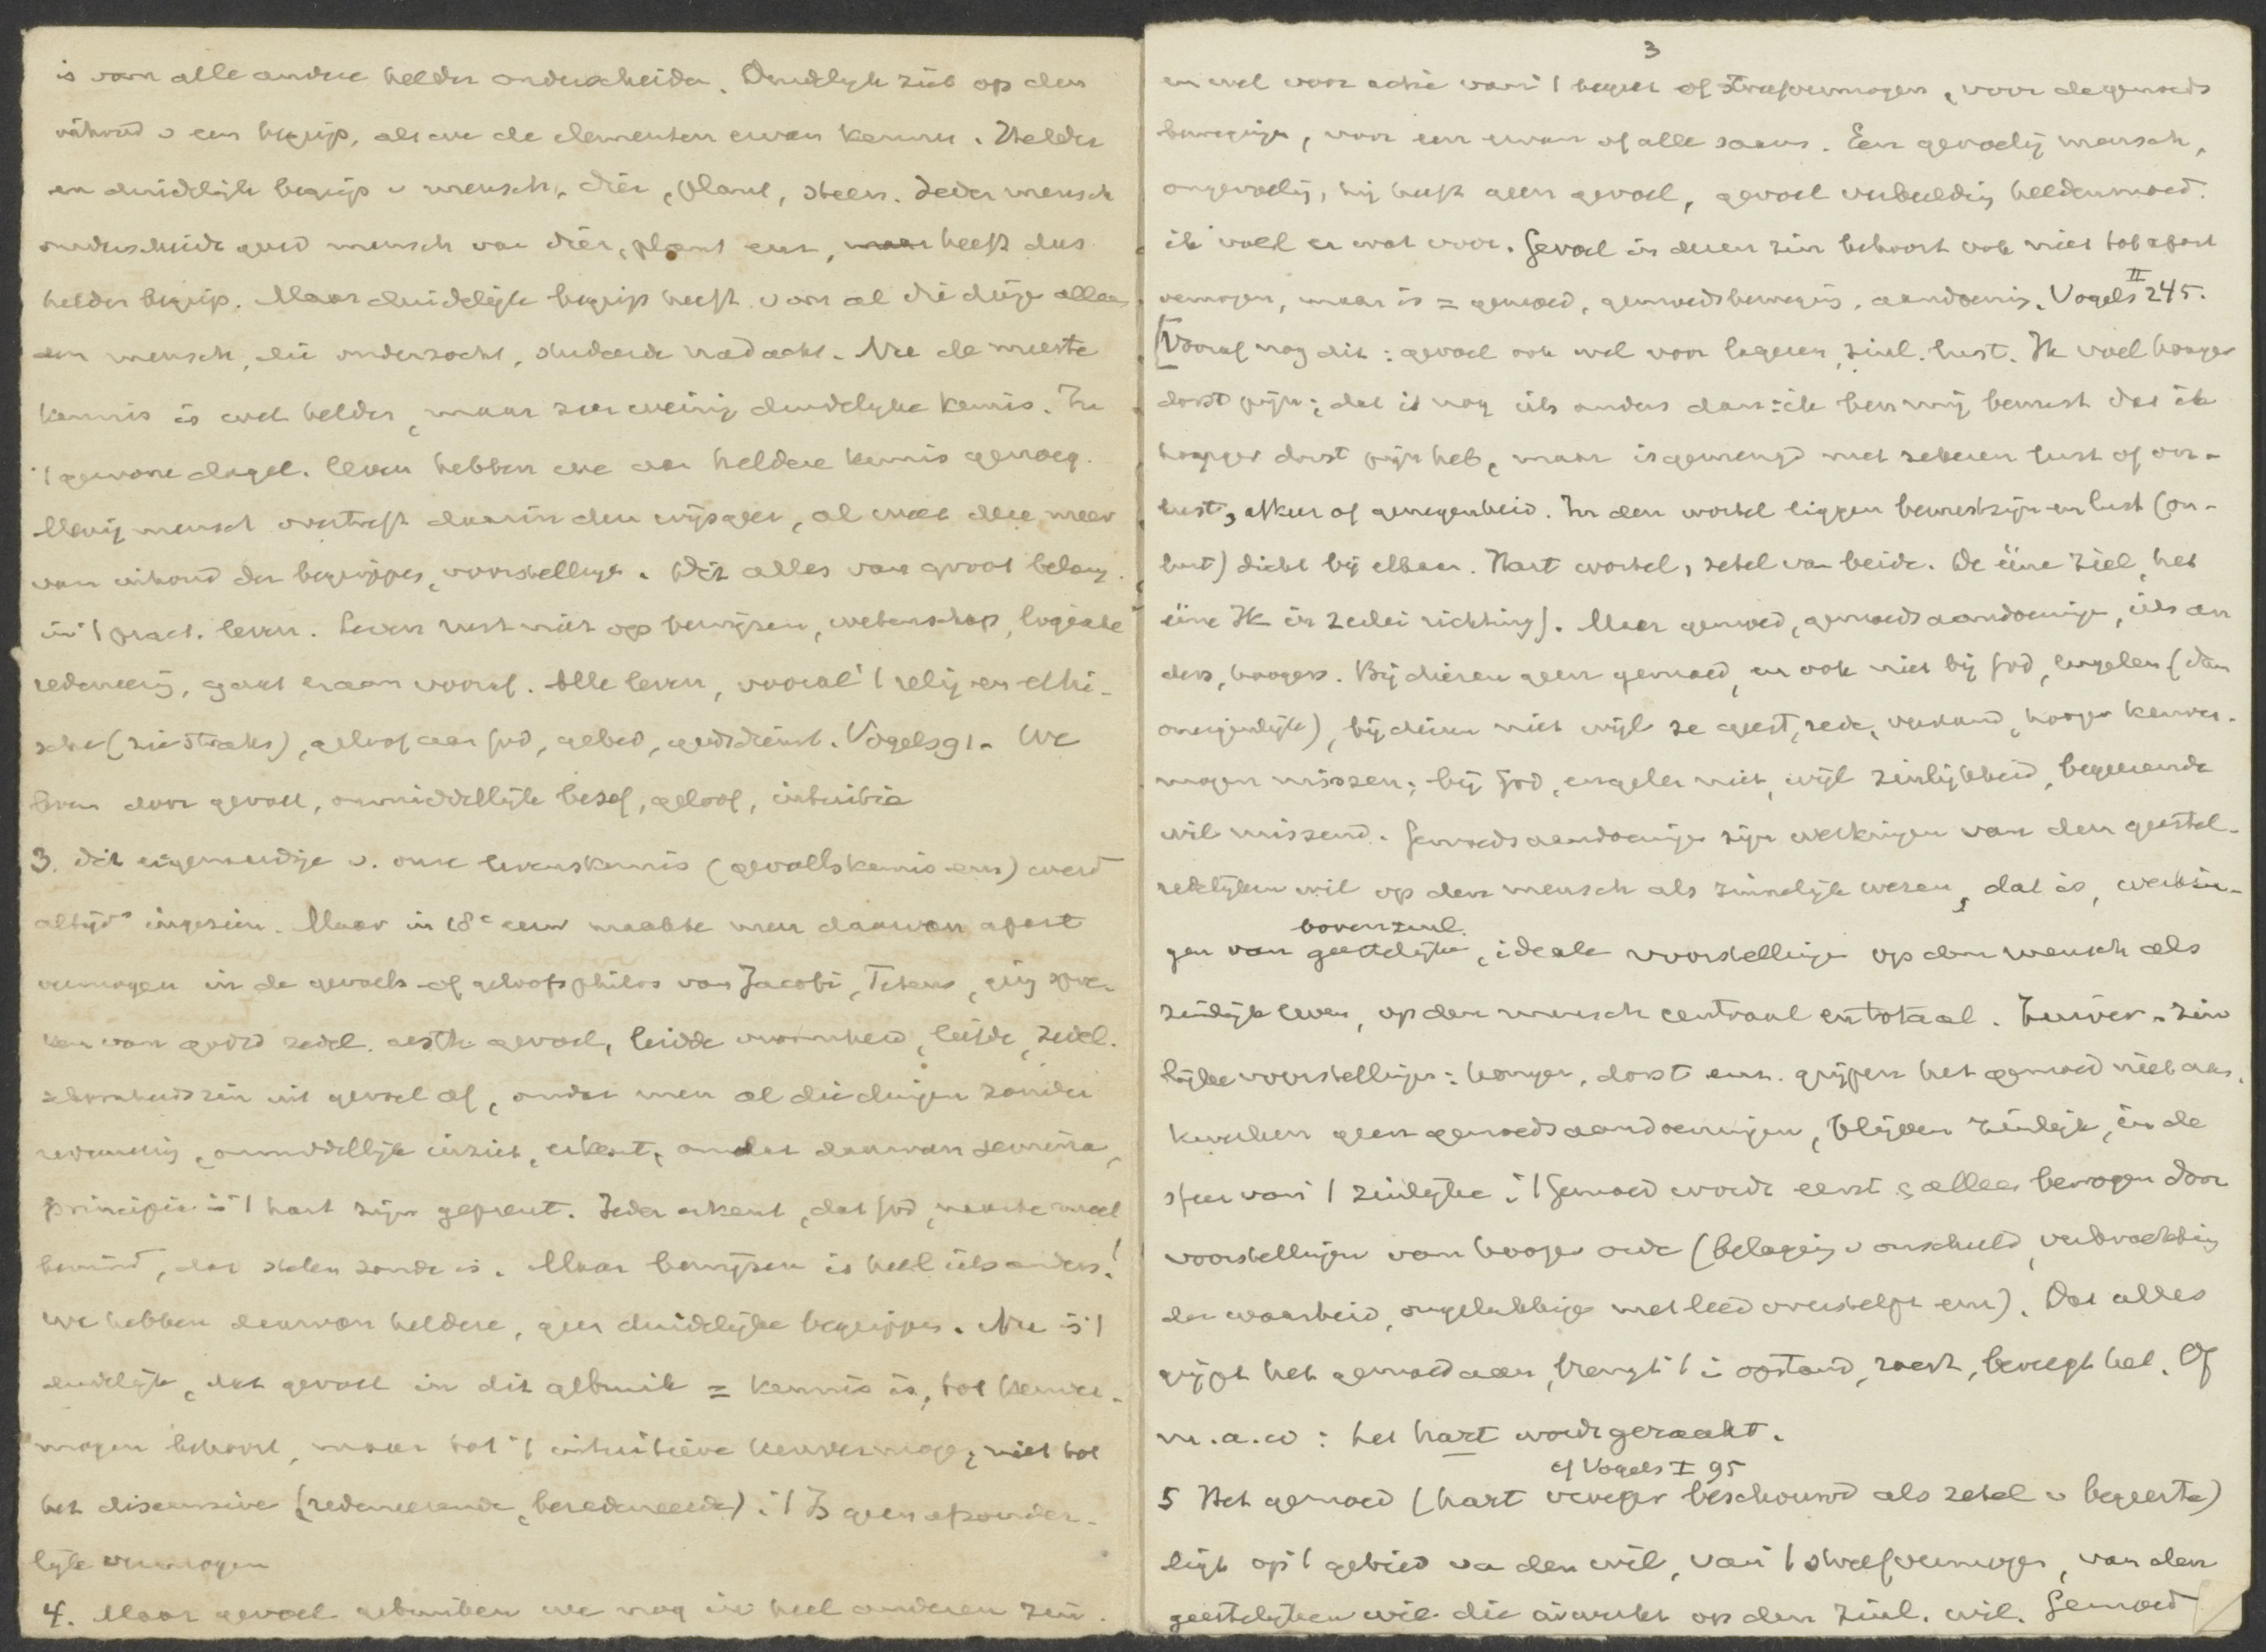 is van alle andere helder onderscheiden. Duidelyk ziet op den
inhoud v een begrip, als we de elementen ervan kennen. Helder
en duidelijk begrip v mensch, dier, plant, steen. Ieder mensch
onderscheidt goed mensch van dier, plant enz, heeft dus
helder begrip. Maar duidelijk begrip heeft v van al die dinge alleen
een mensch, die onderzocht, studeerde nadacht. Nu de meeste
kennis is wel helder, maar zeer weinig duidelyke kennis. In
't gewone dagel. leven hebben we aan heldere kennis genoeg.
Menig mensch overtreft daarin den wijsgeer, al weet deze meer
van inhoud der begrippen, voorstellinge. Dit alles van groot belang
in 't pract. leven. Leven rust niet op bewijzen, wetenschap, logische
redeneering, gaat eraan vooraf. Alle leven, vooral 't relig en ethi-
sche (zie straks), geloof aan God, gebed, godsdienst. Vogels 91. We
leven door gevoel, onmiddellijk besef, geloof, intuitie
3. dit eigenaardige v. onze levenskennis (gevoelskennis enz) werd
altijd ingezien. Maar in 18e eeuw maakte men daarvan apart
vermogen in de gevoels- of geloofsphilos van Jacobi, Tetens, ging spre-
ken van godsd zedel. aesth gevoel, leidde vroomheid, liefde, zedel.
schoonheidszin uit gevoel af, omdat men al die dingen zonder
redeneering, onmiddellijk inziet, erkent, omdat daarvan semina,
principia in 't hart zijn geprent. Ieder erkent, dat God, naaste moet
bemind, dat stelen zonde is. Maar bewijzen is heel iets anders!
We hebben daarvan heldere, geen duidelijke begrippen. Nu is 't
duidelijk, dat gevoel in dit gebruik = kennis is, tot kenver-
mogen behoort, maar tot 't intuitieve kenvermogen, niet tot
het discursive (redeneerende, beredeneerde). 't Is geen afzonder-
lijk vermogen
4. Maar gevoel gebruiken we nog in heel anderen zin.
3
en wel voor actie van 't begeer of streefvermogen, voor de gemoeds
bewegingen, voor een ervan of alle saam. Een gevoelig mensch,
ongevoelig, hij heeft geen gevoel, gevoel verbeelding heldenmoed.
ik voel er wat voor. Gevoel in dezen zin behoort ook niet tot apart
vermogen, maar is = gemoed, gemoedsbeweging, aandoening. Vogels II 245.
[Vooraf nog dit: gevoel ook wel voor lageren, zinl. lust. Ik voel honger
dorst pijn; dat is nog iets anders dan: ik ben mij bewust dat ik
honger dorst pijn heb, maar is gemengd met zekeren lust of on-
lust, afkeer of genegenheid. In den wortel liggen bewustzijn en lust (on-
lust) dicht bij elkaar. Hart wortel, zetel van beide. De ééne ziel, het
ééne Ik in 2erlei richting]. Maar gemoed, gemoedsaandoeninge, iets an
ders, hoogers. Bij dieren geen gemoed, en ook niet bij God, engelen (dan
oneigenlijk), bij dieren niet wijl ze geest, rede, verstand, hooger kenver-
mogen missen; bij God, engelen niet, wijl zinlijkheid, begeerende
wil missend. Gemoedsaandoeninge zijn werkingen van den geestel-
redelijken wil op den mensch als zinnelijk wezen, dat is, werkin-
bovenzinl.
gen van geestelijke, ideale voorstellinge op den mensch als
zinlijk leven, op den mensch centraal en totaal. Zuiver-zin
lijke voorstellingen: honger, dorst enz. grijpen het gemoed niet aan,
kweeken geen gemoedsaandoeningen, blijven zinlijk, in de
sfeer van 't zinlijke. 't Gemoed wordt eerst & alleen bewogen door
voorstellingen van hooger orde (belaging v onschuld, verdrukking
der waarheid, ongelukkige met leed overstelpt enz). Dat alles
grijpt het gemoed aan, brengt 't in opstand, roert, beweegt het. Of
m.a.w: het hart wordt geraakt.
cf Vogels I 95
5 Het gemoed (hart vroeger beschouwd als zetel v begeerte)
ligt op 't gebied va den wil, van 't streefvermogen, van den
geestelijken wil die inwerkt op den zinl. wil. Gemoed